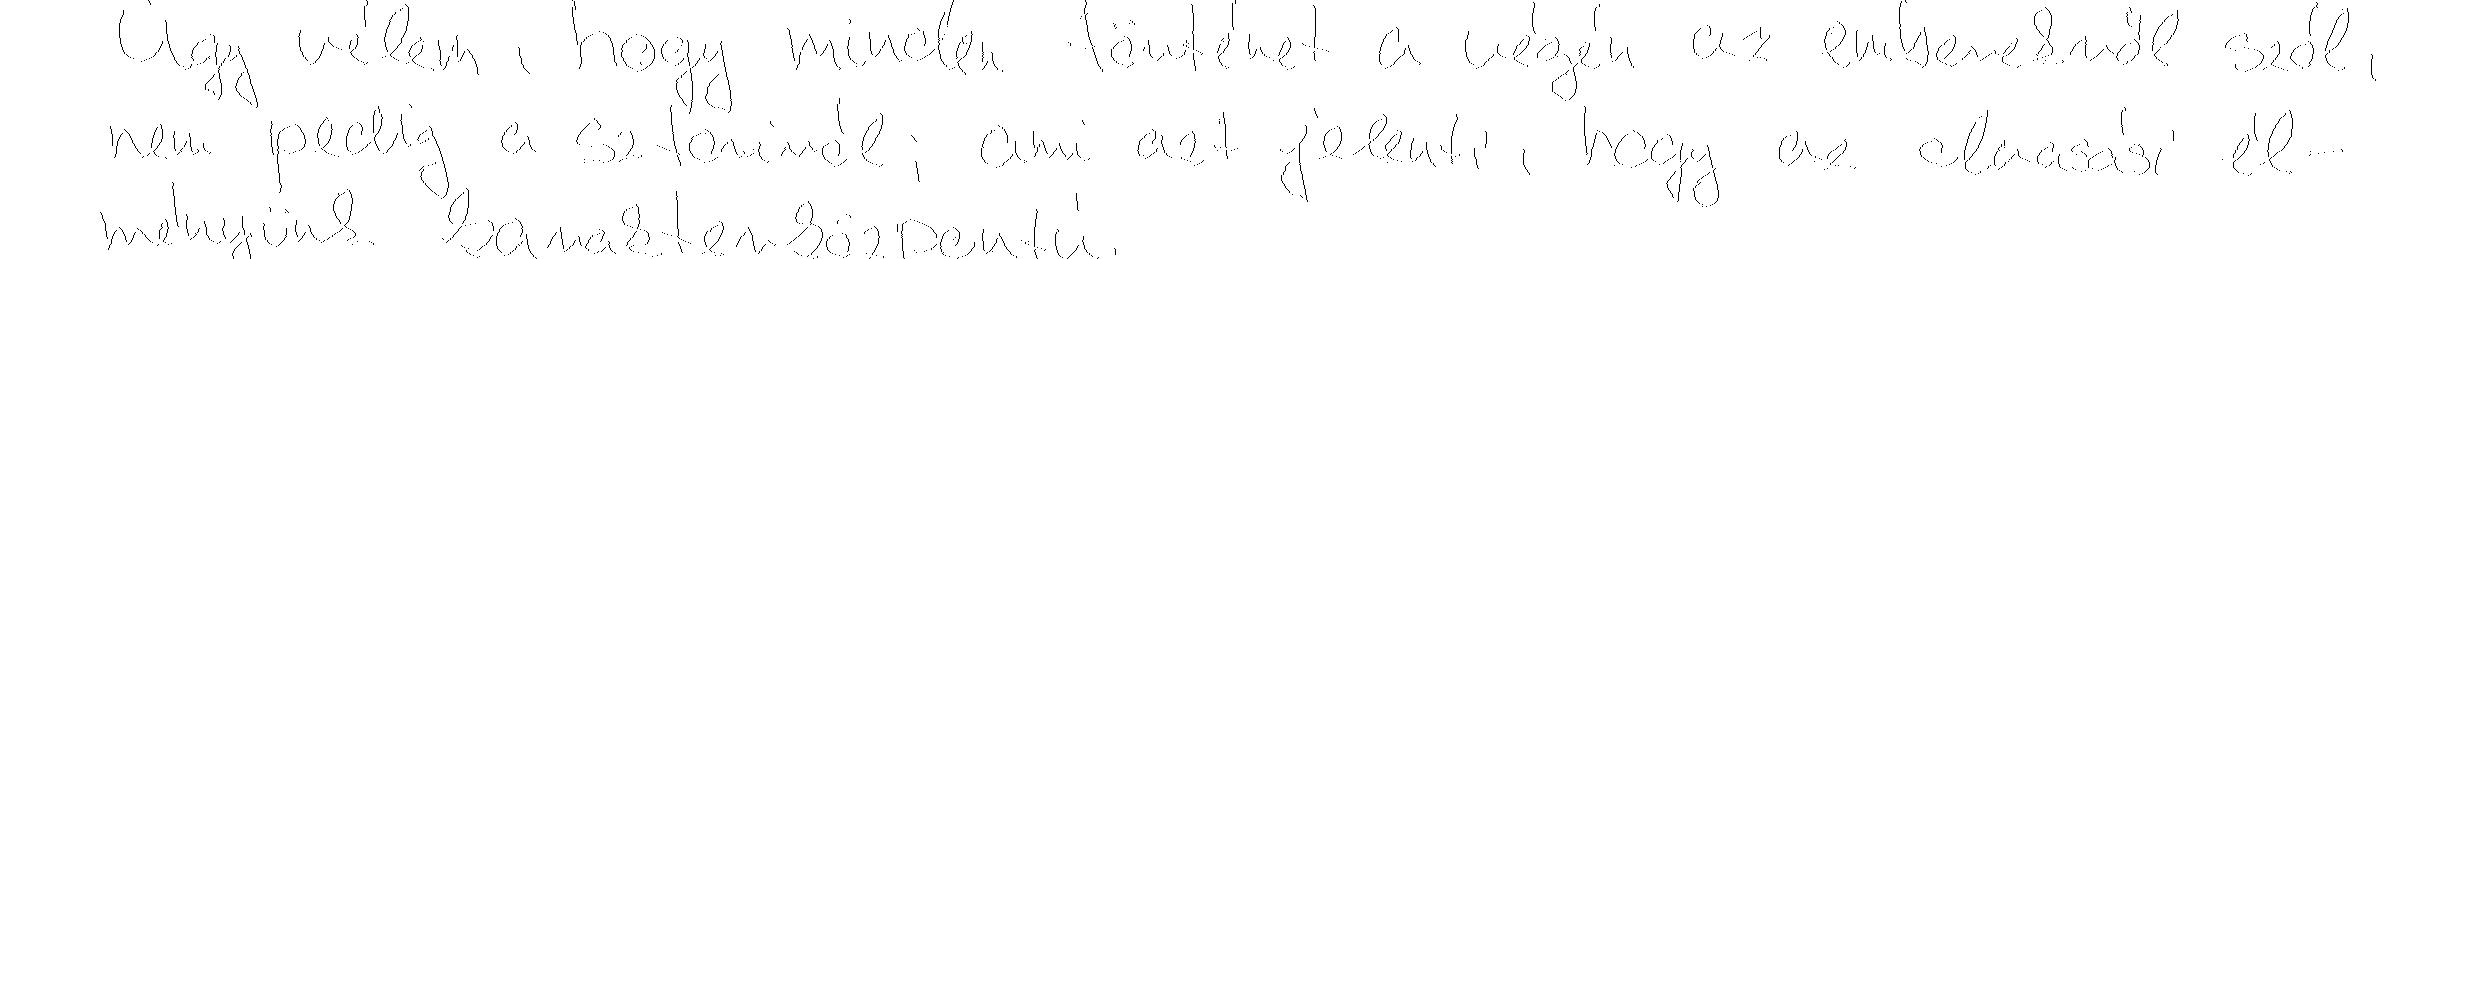 Úgy vélem, hogy minden történet a végén az emberekről szól,
nem pedig a sztoriról, ami azt jelenti, hogy az olvasási él-
ményünk karakterközpontú.